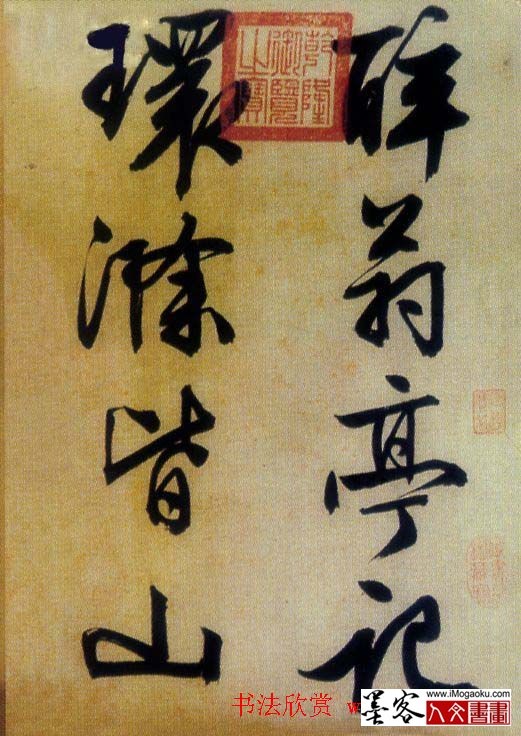 醉翁亭記
環滁皆山
乾隆御覽之寶
书法欣赏 w
www.iMogaoku.com
墨客
人文書畫